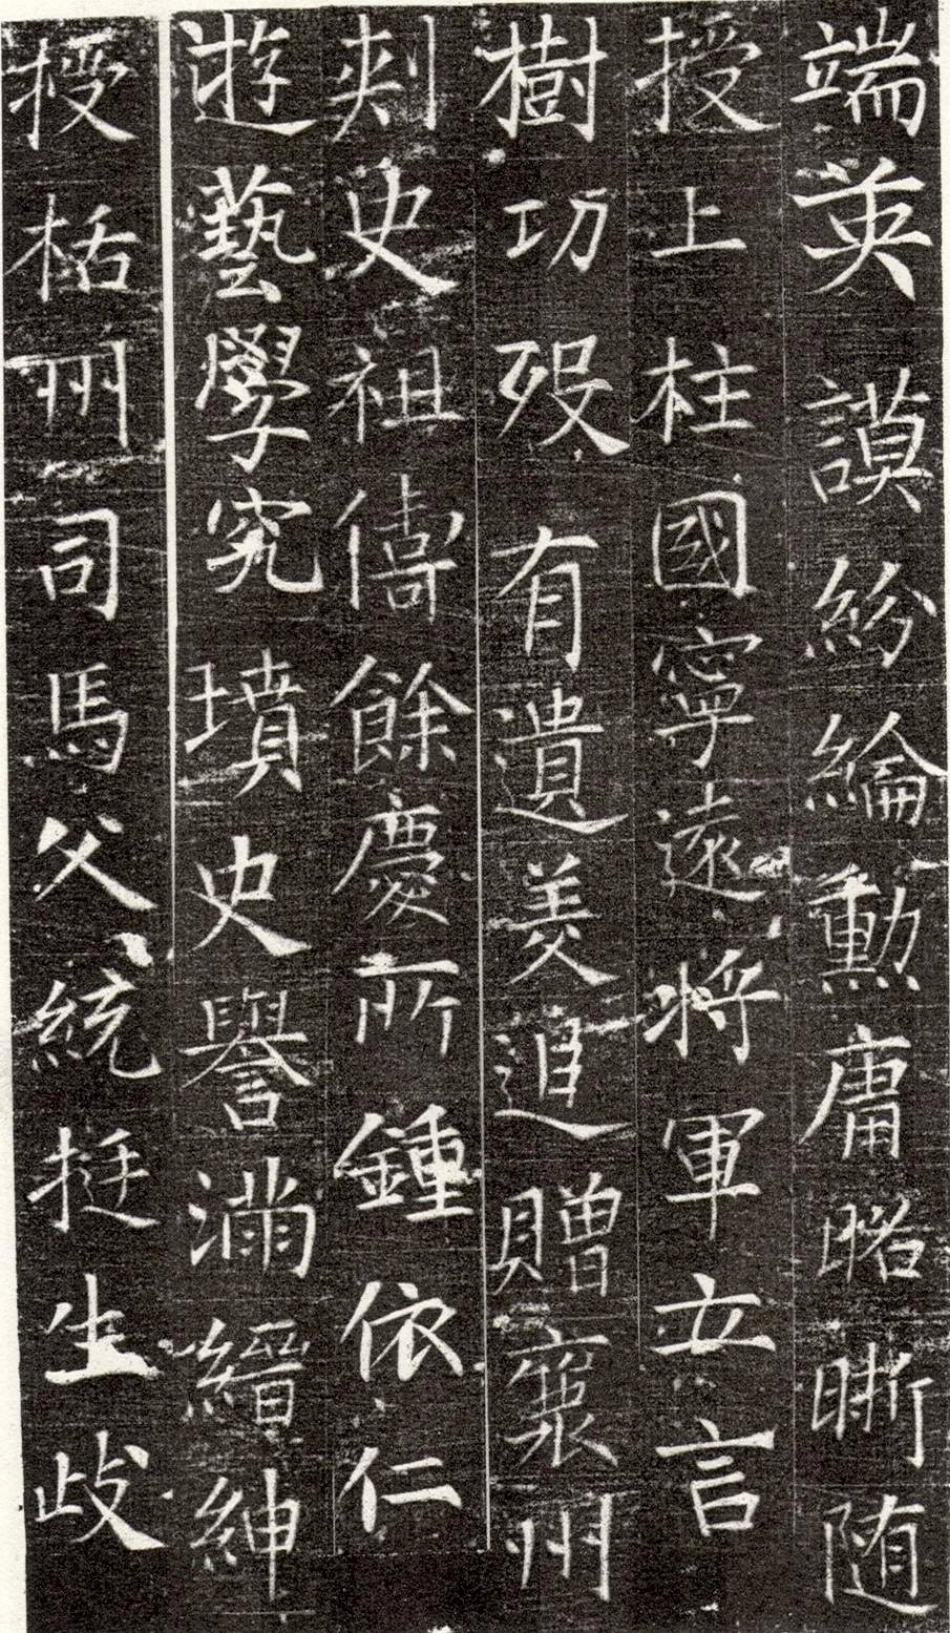 端英謨紛綸勳庸昭晣随
授上柱國寧遠將軍立言
樹功歿有遺美追贈襄州
刾史祖儔餘慶所鍾依仁
遊藝學究墳史譽滿縉紳
授栝州司馬父統挺生歧